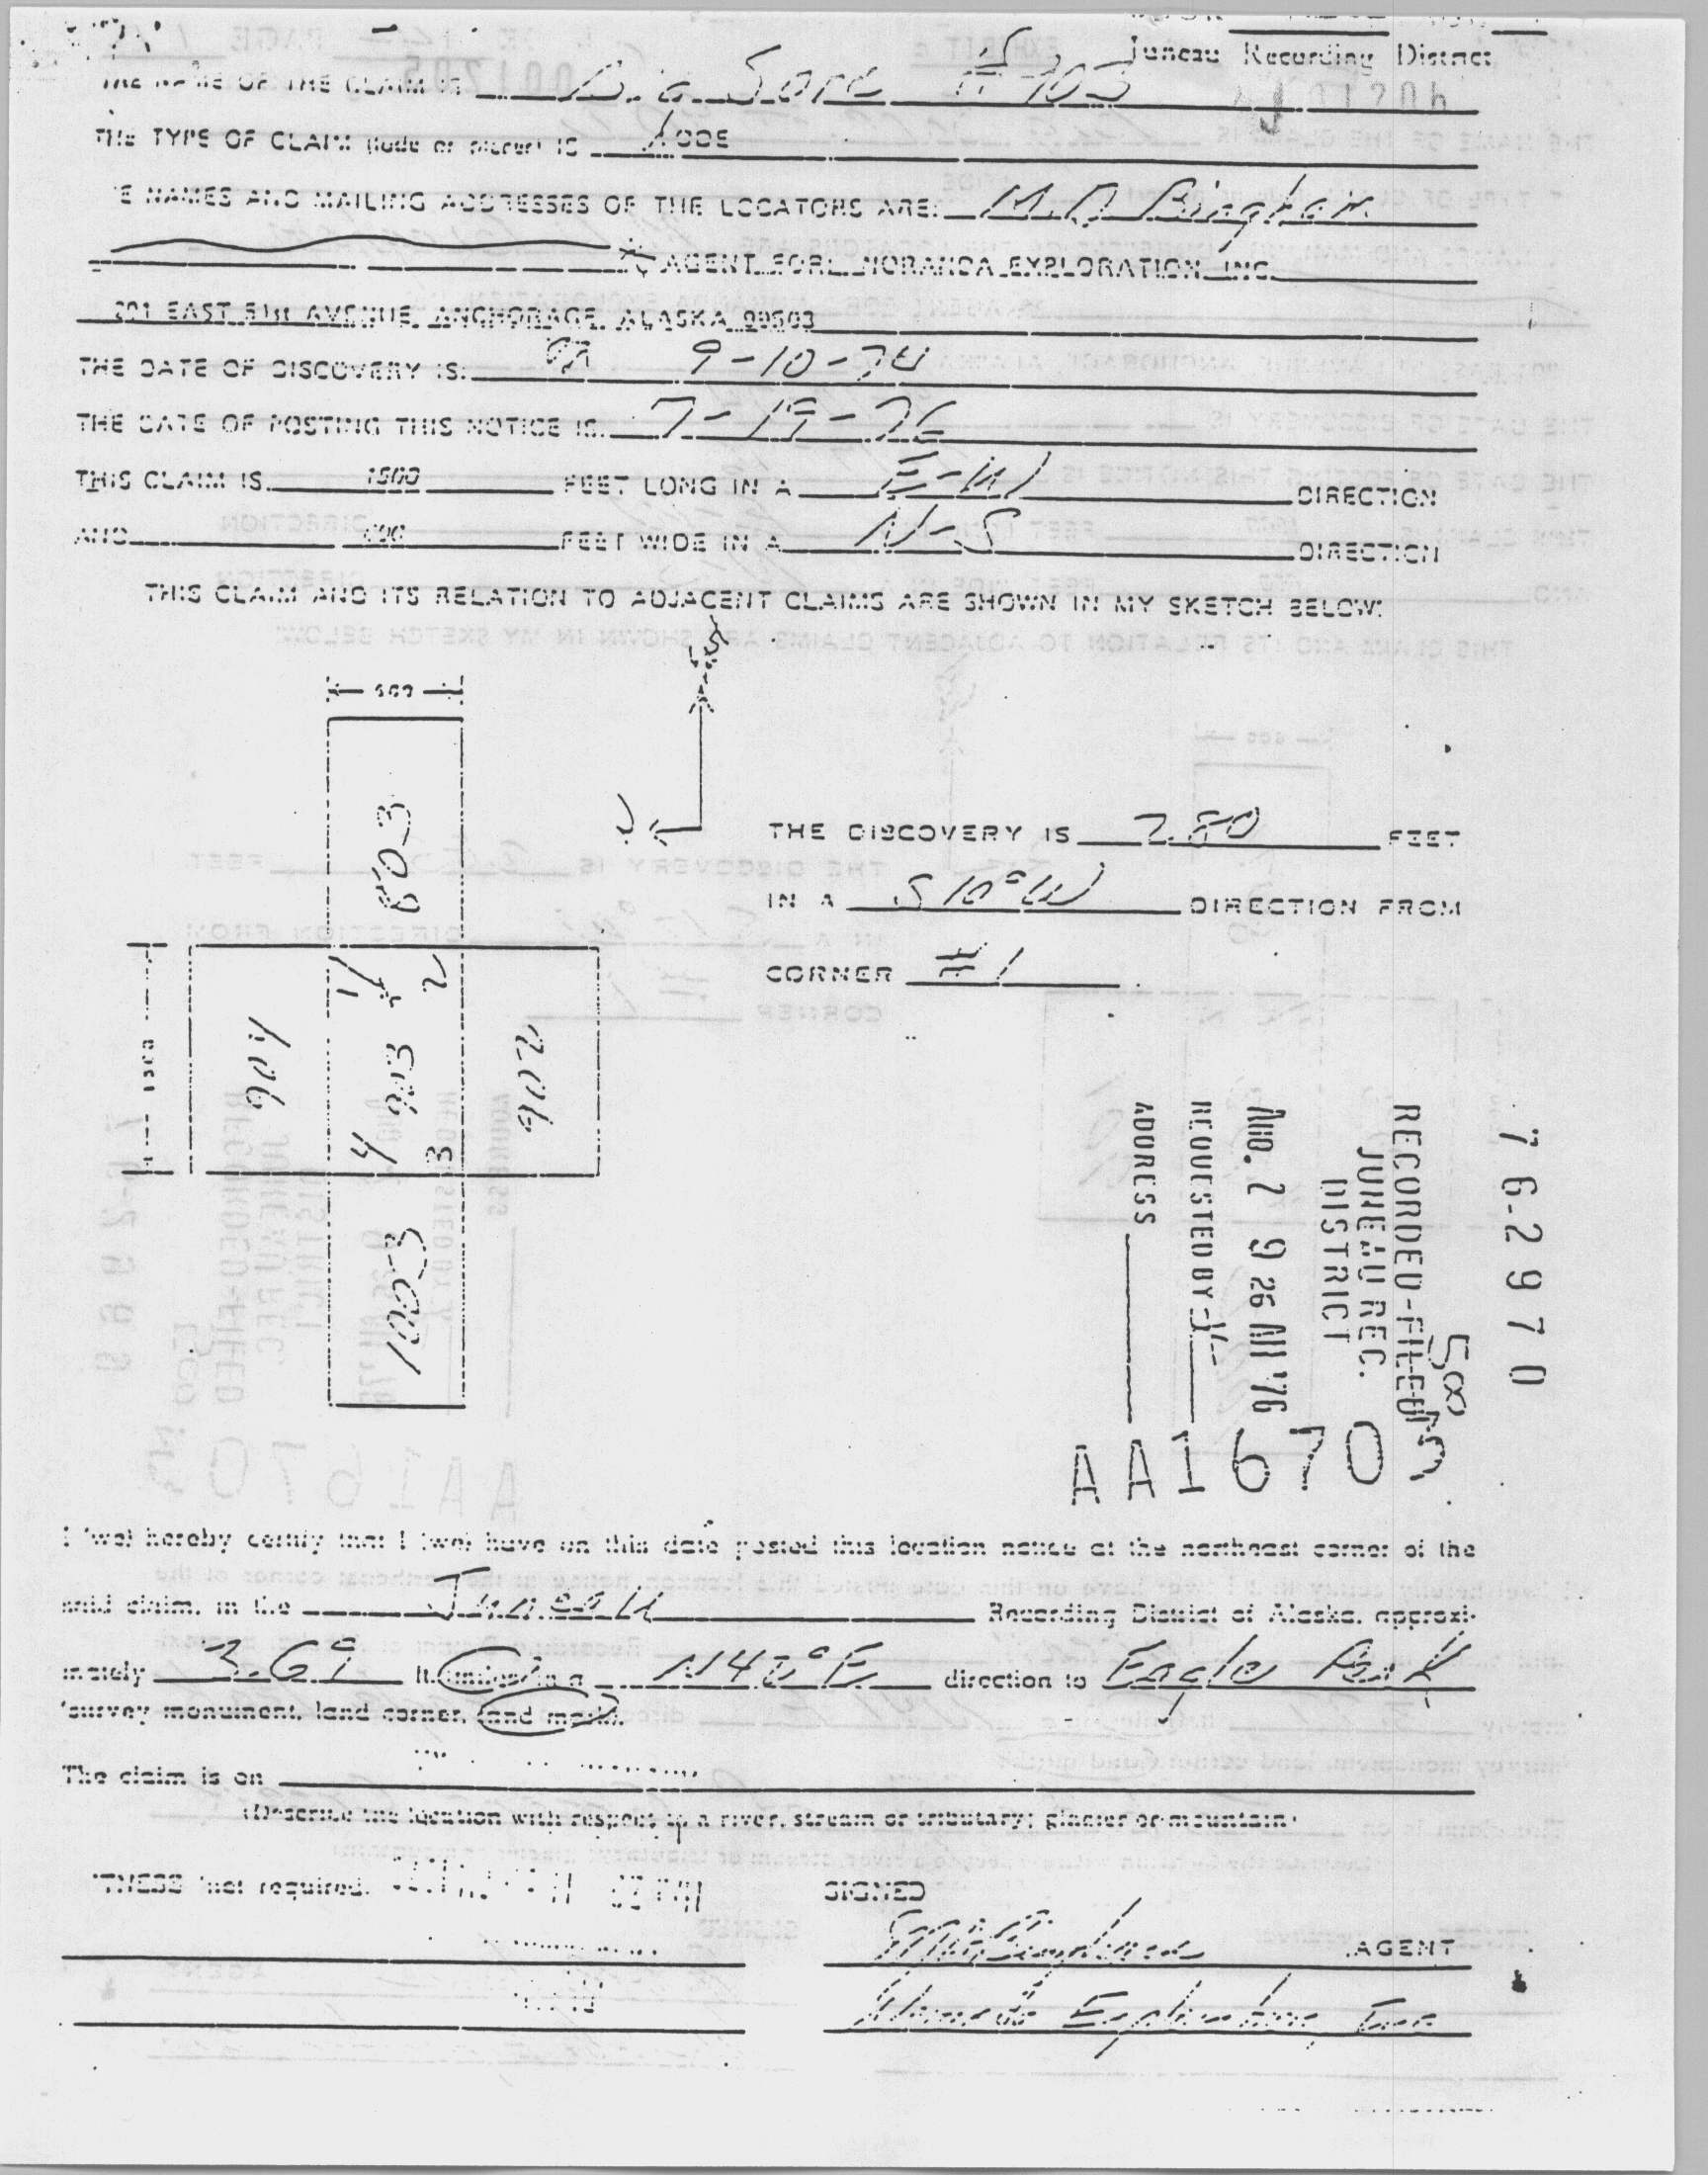 Juneau Recording District
THE NAME OF THE CLAIM IS Big Sore # 903
THE TYPE OF CLAIM (lode or placer) IS LODE
E NAMES AND MAILING ADDRESSES OF THE LOCATORS ARE: M.D. Bingham
AGENT FOR: NORANDA EXPLORATION, INC.
201 EAST 51st AVENUE, ANCHORAGE, ALASKA 99503
THE DATE OF DISCOVERY IS: 9-10-74
THE DATE OF POSTING THIS NOTICE IS: 7-19-76
THIS CLAIM IS 1500 FEET LONG IN A E-W DIRECTION
AND 600 FEET WIDE IN A N-S DIRECTION
THIS CLAIM AND ITS RELATION TO ADJACENT CLAIMS ARE SHOWN IN MY SKETCH BELOW:
600
803
THE DISCOVERY IS 280 FEET
IN A S 10° W DIRECTION FROM
CORNER # 1
1500
904
1
2
903
4
3
902
1003
76-2970
RECORDED-FILED
JUNEAU REC.
DISTRICT
AUG. 2 9 26 AM '76
REQUESTED BY
ADDRESS
AA16703
I (we) hereby certify that I (we) have on this date posted this location notice at the northeast corner of the
said claim, in the Juneau Recording District of Alaska, approxi-
mately 3.69 ft. (miles) in a N40°E direction to Eagle Peak
(survey monument, land corner, land mark).
The claim is on
(Describe the location with respect to a river, stream or tributary; glacier or mountain)
TNESS (not required)
SIGNED
AGENT
Noranda Exploration, Inc